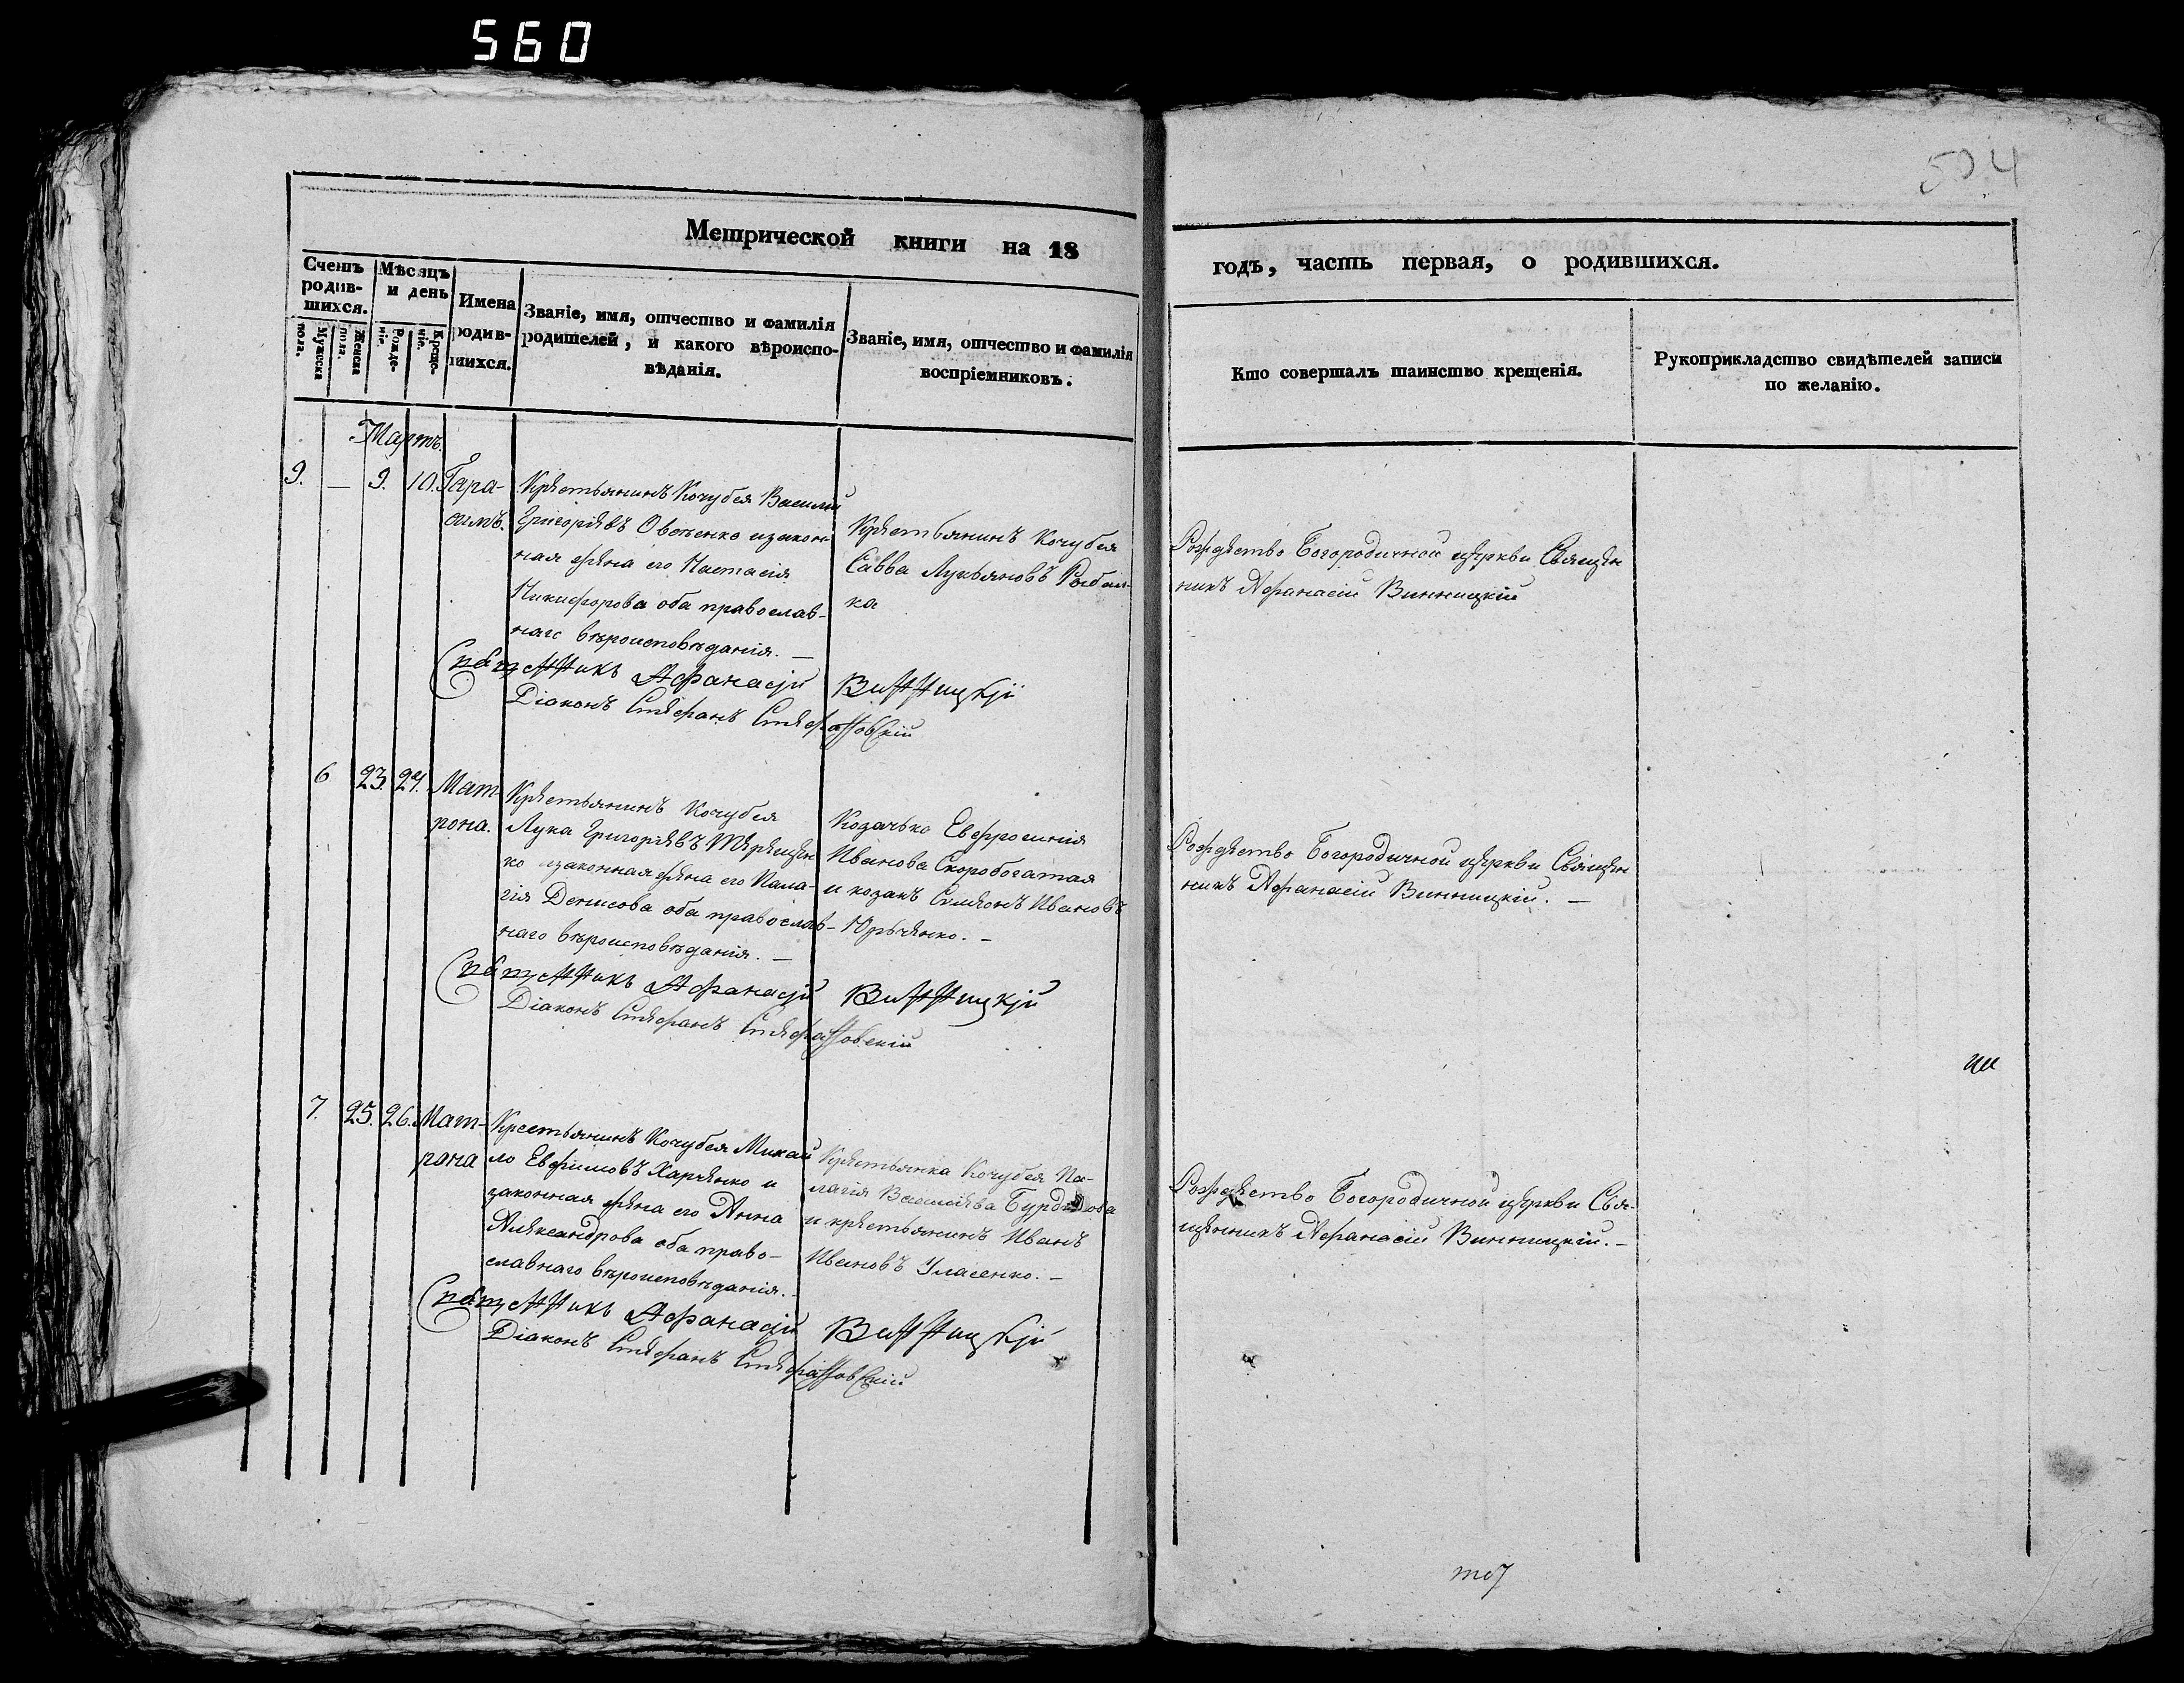 560
534
Метрической книги на 18
годъ, часть первая, о родившихся.
Счетъ родив-шихся.
Мужеска пола.
Женска пола.
Мѣсяцъ и день
Рожде-ніе.
Креще-ніе.
Имена родив-шихся.
Званіе, имя, отчество и фамилія
родителей, и какого вѣроиспо-
вѣданія.
Званіе, имя, отчество и фамилія
воспріемниковъ.
Кто совершалъ таинство крещенія.
Рукоприкладство свидѣтелей записи
по желанію.
Мартъ.
9. — 9. 10. Гара-
симъ.
Крестьянинъ Кочубея Василій
Григоріевъ Овсѣенко изакон-
ная жена его Настасія
Никифорова оба православ-
наго вѣроисповѣданія. —
Крестьянинъ Кочубея
Савва Лукьяновъ Рыбал-
ка
Рождество Богородичной церкви Священ
никъ Афанасій Винницкій
Священникъ Афанасій Винницкій
Діаконъ Стефанъ Стефановскій
6 23. 24. Мат-
рона.
Крестьянинъ Кочубея
Лука Григоріевъ Терещен
ко изаконная жена его Пала-
гія Денисова оба православ-
наго вѣроисповѣданія. —
Козачька Евфросинія
Иванова Скоробогатая
и козакъ Симеонъ Ивановъ
Юрченко. —
Рождество Богородичной церкви Священ
никъ Афанасій Винницкій. —
Священникъ Афанасій Винницкій
Діаконъ Стефанъ Стефановскій
7. 25. 26. Мат-
рона
Крестьянинъ Кочубея Михай
ло Евфимовъ Харченко и
законная жена его Анна
Александрова оба право-
славнаго вѣроисповѣданія.
Крестьянка Кочубея Па-
лагія Василіева
и крестьянинъ Иванъ
Ивановъ Уласенко. —
Рождество Богородичной церкви Свя-
щенникъ Афанасій Винницкій. —
Священникъ Афанасій Винницкій
Діаконъ Стефанъ Стефановскій